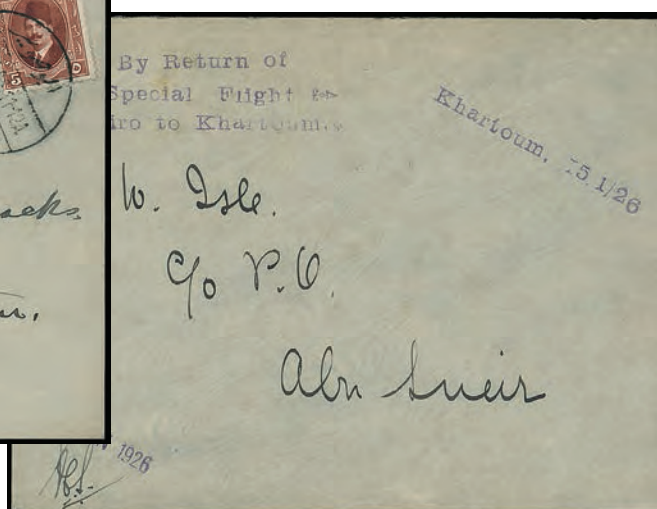 By Return of
Special Flight
iro to Khartoum.
Khartoum, 25 1/26
W. Isle.
C/o P.O.
Abu Sueir
1926
acks
5